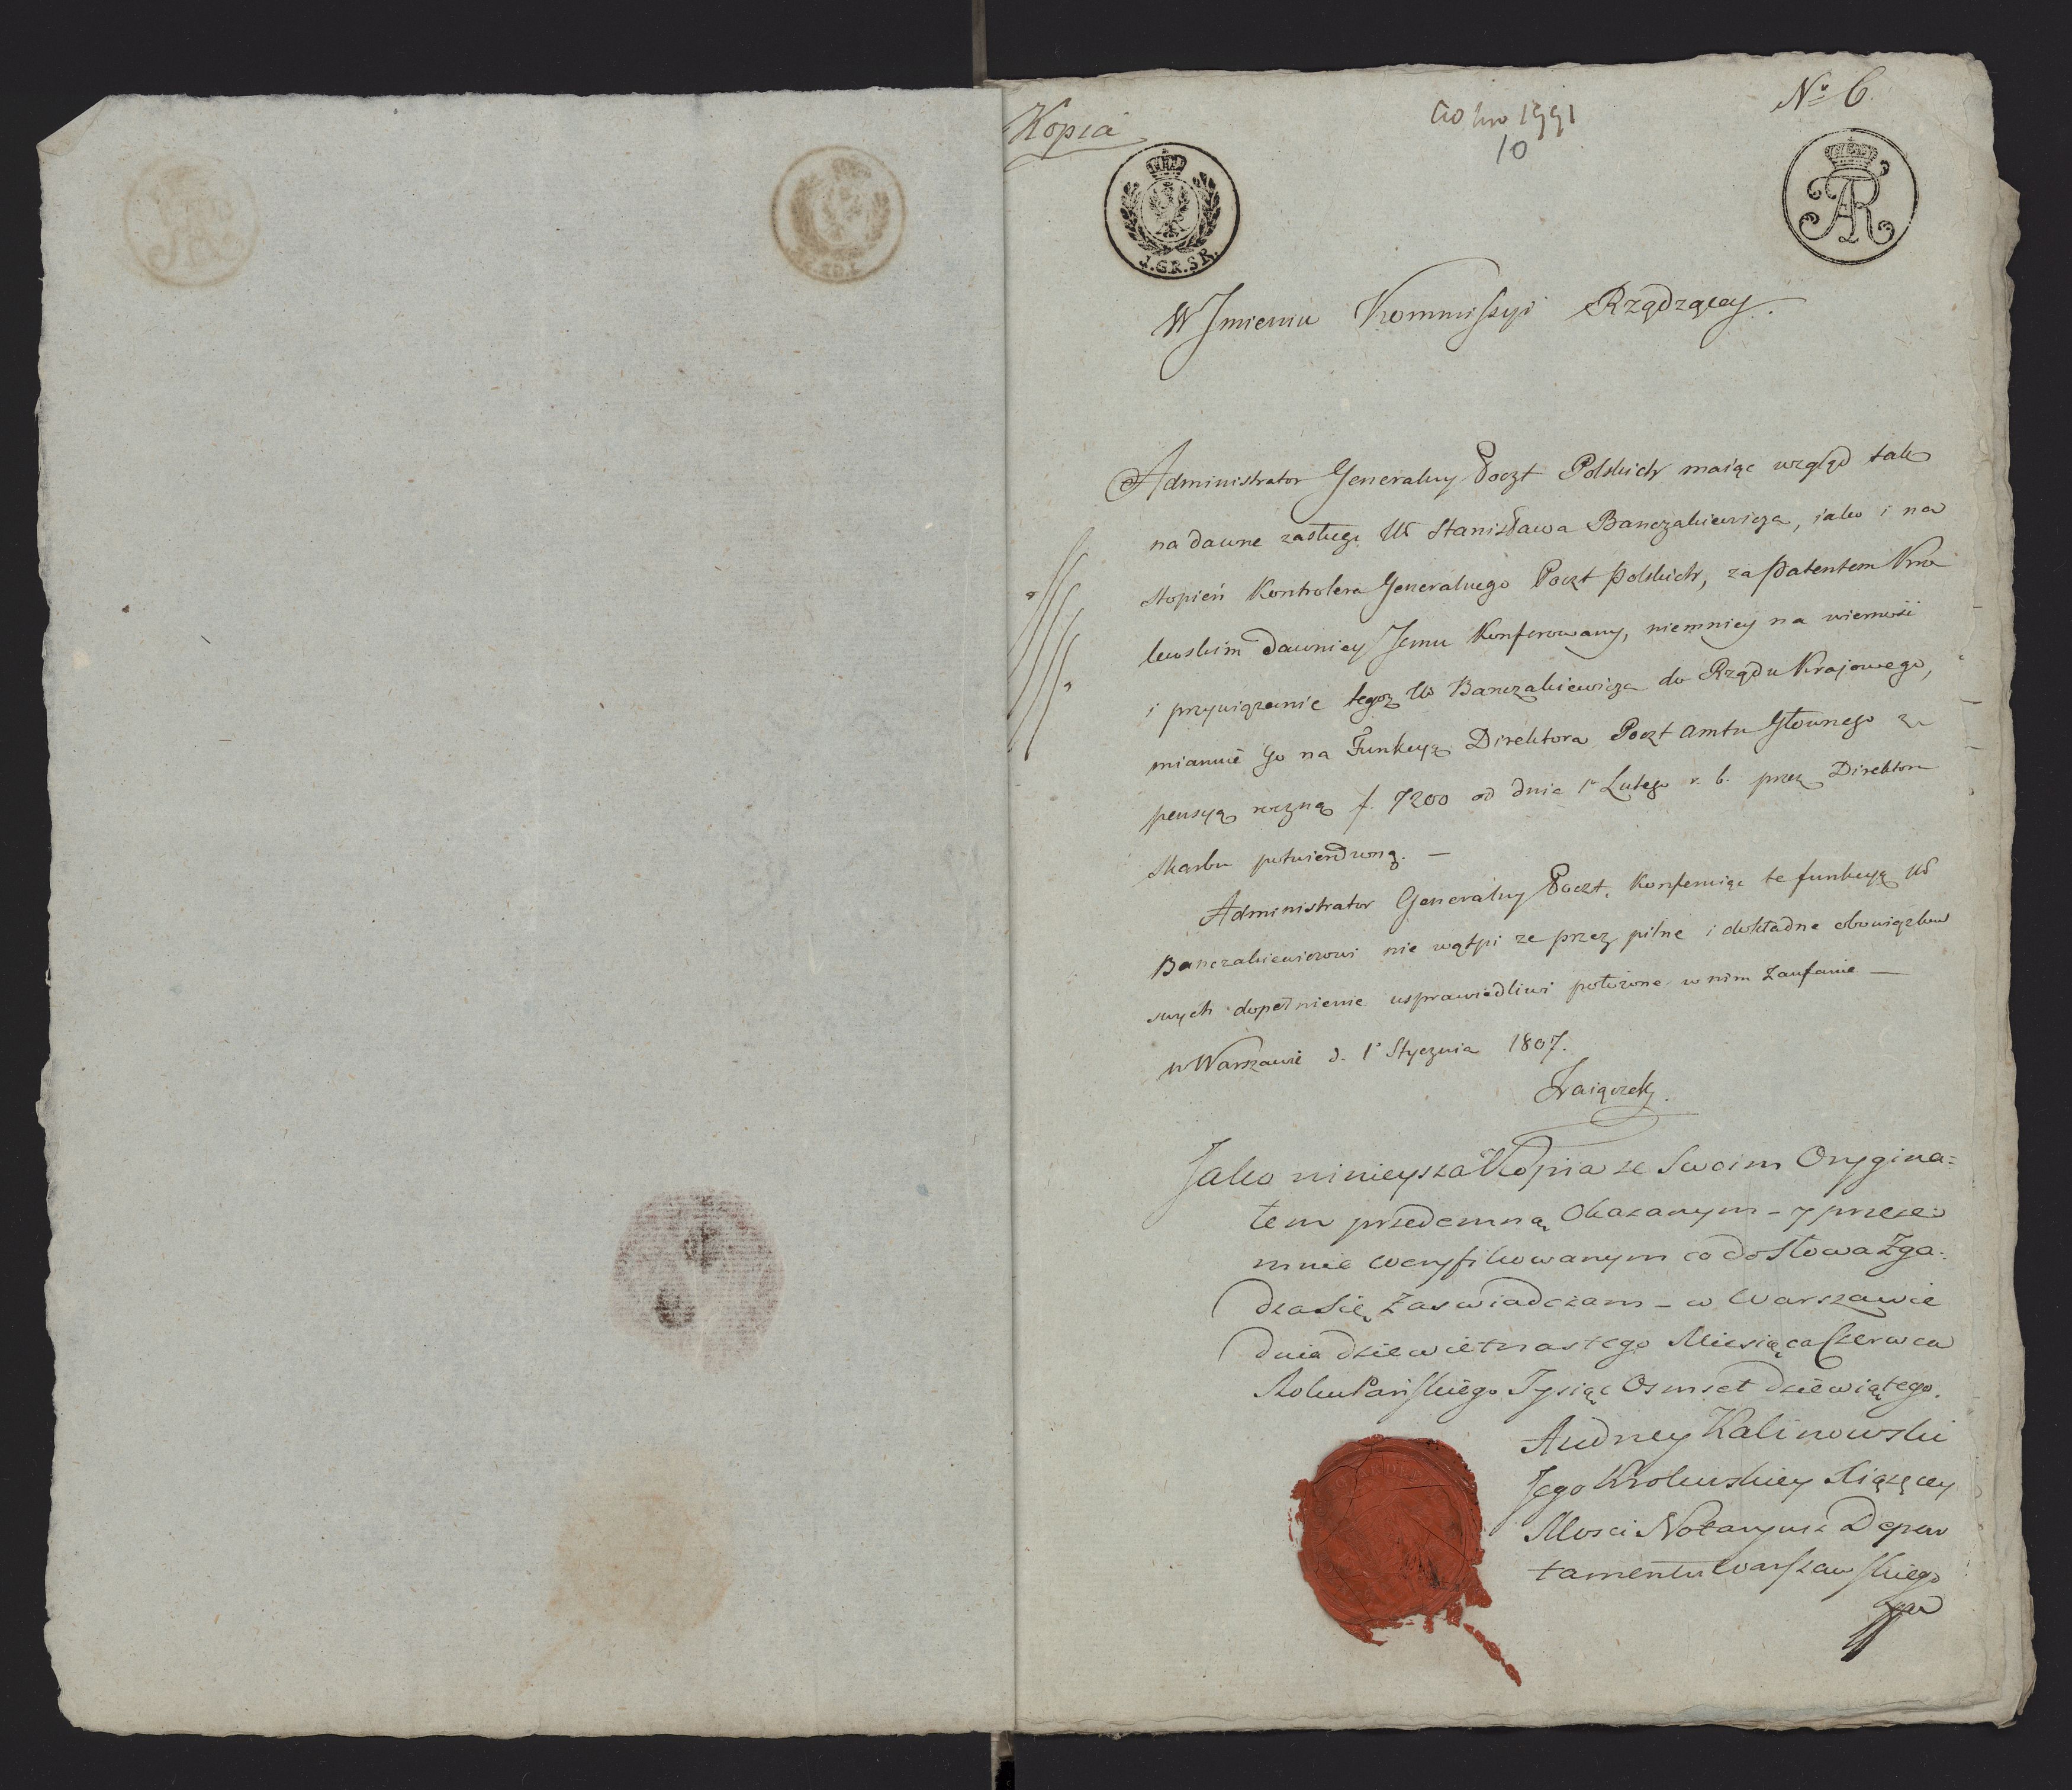 Kopia
No 6.
ad nro 1991
10
J.GR.SR.
AR
W Jmieniu Kommissyi Rządzącey.
Administrator Generalny Poczt Polskich maiąc wzgląd tak
na dawne zasługi W Stanisława Banczakiewicza, iako i na
stopień Kontrolera Generalnego Poczt Polskich, za Patentem Kró
lewskim dawniey Jemu konferowany, niemniey na wierność
i przywiązanie tegoz W Banczakiewicza do Rządu Krajowego,
mianuie Go na Funkcyą Direktora Poczt amtu Głownego z
pensyą roczną f. 7200 od dnia 1o Lutego r. b. przez Direktora
Skarbu potwierdzoną. —
Administrator Generalny Poczt, konferuiąc te funkcyą W
Banczakiewiczowi nie wątpi ze przez pilne i dokładne obowiązkow
swych dopełnienie usprawiedliwi położone w nim zaufanie —
w Warszawie d. 1o Stycznia 1807.
Zaiączek.
Jako ninieysza Kopia ze Swoim Orygina=
łem przedemną Okazanym - y przeze
mnie weryfikowanym co do Słowa Zga=
dza Się Zaswiadczam - w Warszawie
dnia dziewietnastego Miesiąca Czerwca
Roku Pańskiego Tysiąc Osmset dziewiątego.
Andrzey Kalinowski
Jego Krolewskiey Xiązęcey
Mosci Notaryusz Depar
tamentu Warszawskiego